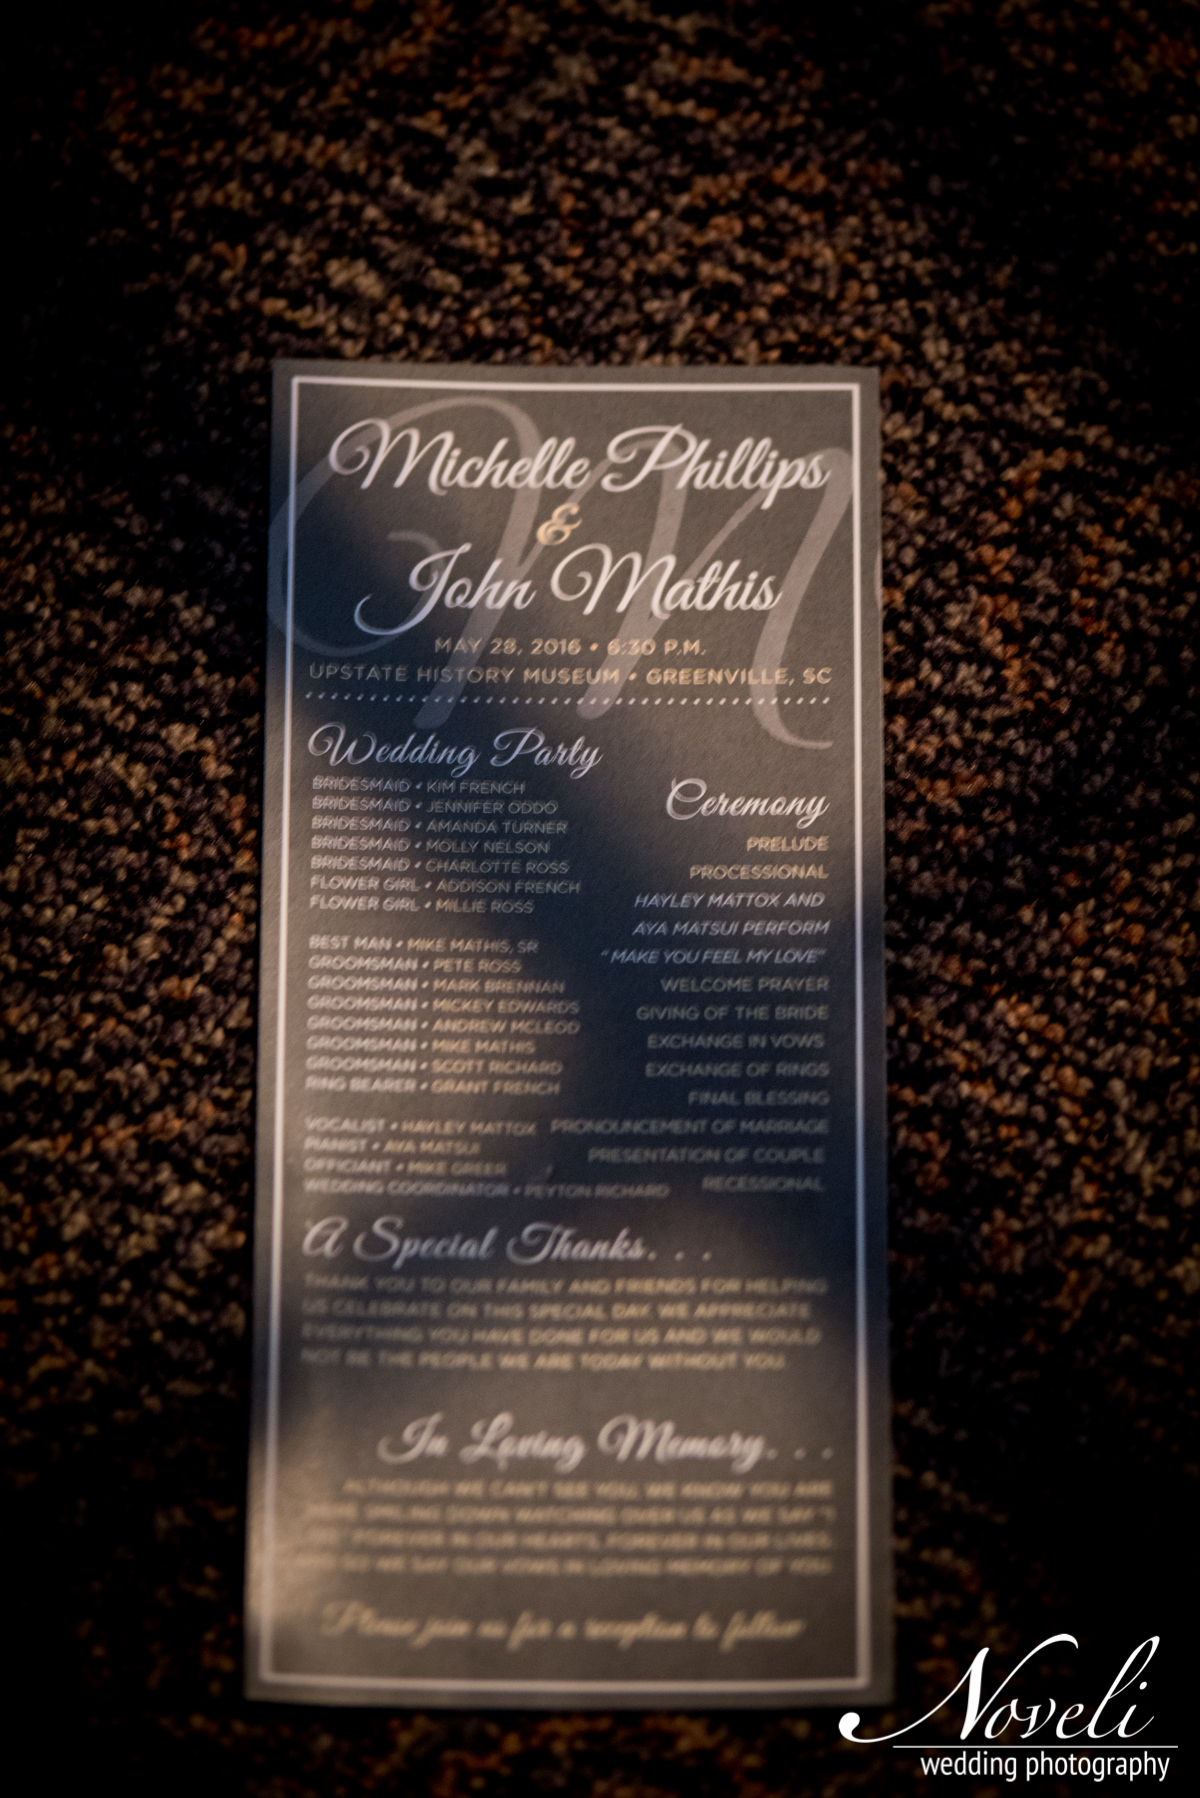 Michelle Phillips
&
John Mathis
MAY 28, 2016 • 6:30 P.M.
UPSTATE HISTORY MUSEUM • GREENVILLE, SC
Wedding Party
BRIDESMAID • KIM FRENCH
BRIDESMAID • JENNIFER ODDO
BRIDESMAID • AMANDA TURNER
BRIDESMAID • MOLLY NELSON
BRIDESMAID • CHARLOTTE ROSS
FLOWER GIRL • ADDISON FRENCH
FLOWER GIRL • MILLIE ROSS
BEST MAN • MIKE MATHIS, SR
GROOMSMAN • PETE ROSS
GROOMSMAN • MARK BRENNAN
GROOMSMAN • MICKEY EDWARDS
GROOMSMAN • ANDREW MCLEOD
GROOMSMAN • MIKE MATHIS
GROOMSMAN • SCOTT RICHARD
RING BEARER • GRANT FRENCH
VOCALIST • HAYLEY MATTOX
PIANIST • AYA MATSUI
OFFICIANT • MIKE GREER
WEDDING COORDINATOR • PEYTON RICHARD
Ceremony
PRELUDE
PROCESSIONAL
HAYLEY MATTOX AND
AYA MATSUI PERFORM
"MAKE YOU FEEL MY LOVE"
WELCOME PRAYER
GIVING OF THE BRIDE
EXCHANGE IN VOWS
EXCHANGE OF RINGS
FINAL BLESSING
PRONOUNCEMENT OF MARRIAGE
PRESENTATION OF COUPLE
RECESSIONAL
A Special Thanks. . .
THANK YOU TO OUR FAMILY AND FRIENDS FOR HELPING
US CELEBRATE ON THIS SPECIAL DAY. WE APPRECIATE
EVERYTHING YOU HAVE DONE FOR US AND WE WOULD
NOT BE THE PEOPLE WE ARE TODAY WITHOUT YOU.
In Loving Memory. . .
ALTHOUGH WE CAN'T SEE YOU, WE KNOW YOU ARE
SMILING DOWN WATCHING OVER US AS WE SAY "I
FOREVER IN OUR HEARTS, FOREVER IN OUR LIVES,
SO WE SAY OUR VOWS IN LOVING MEMORY OF YOU.
Please join us for a reception to follow
Noveli
wedding photography